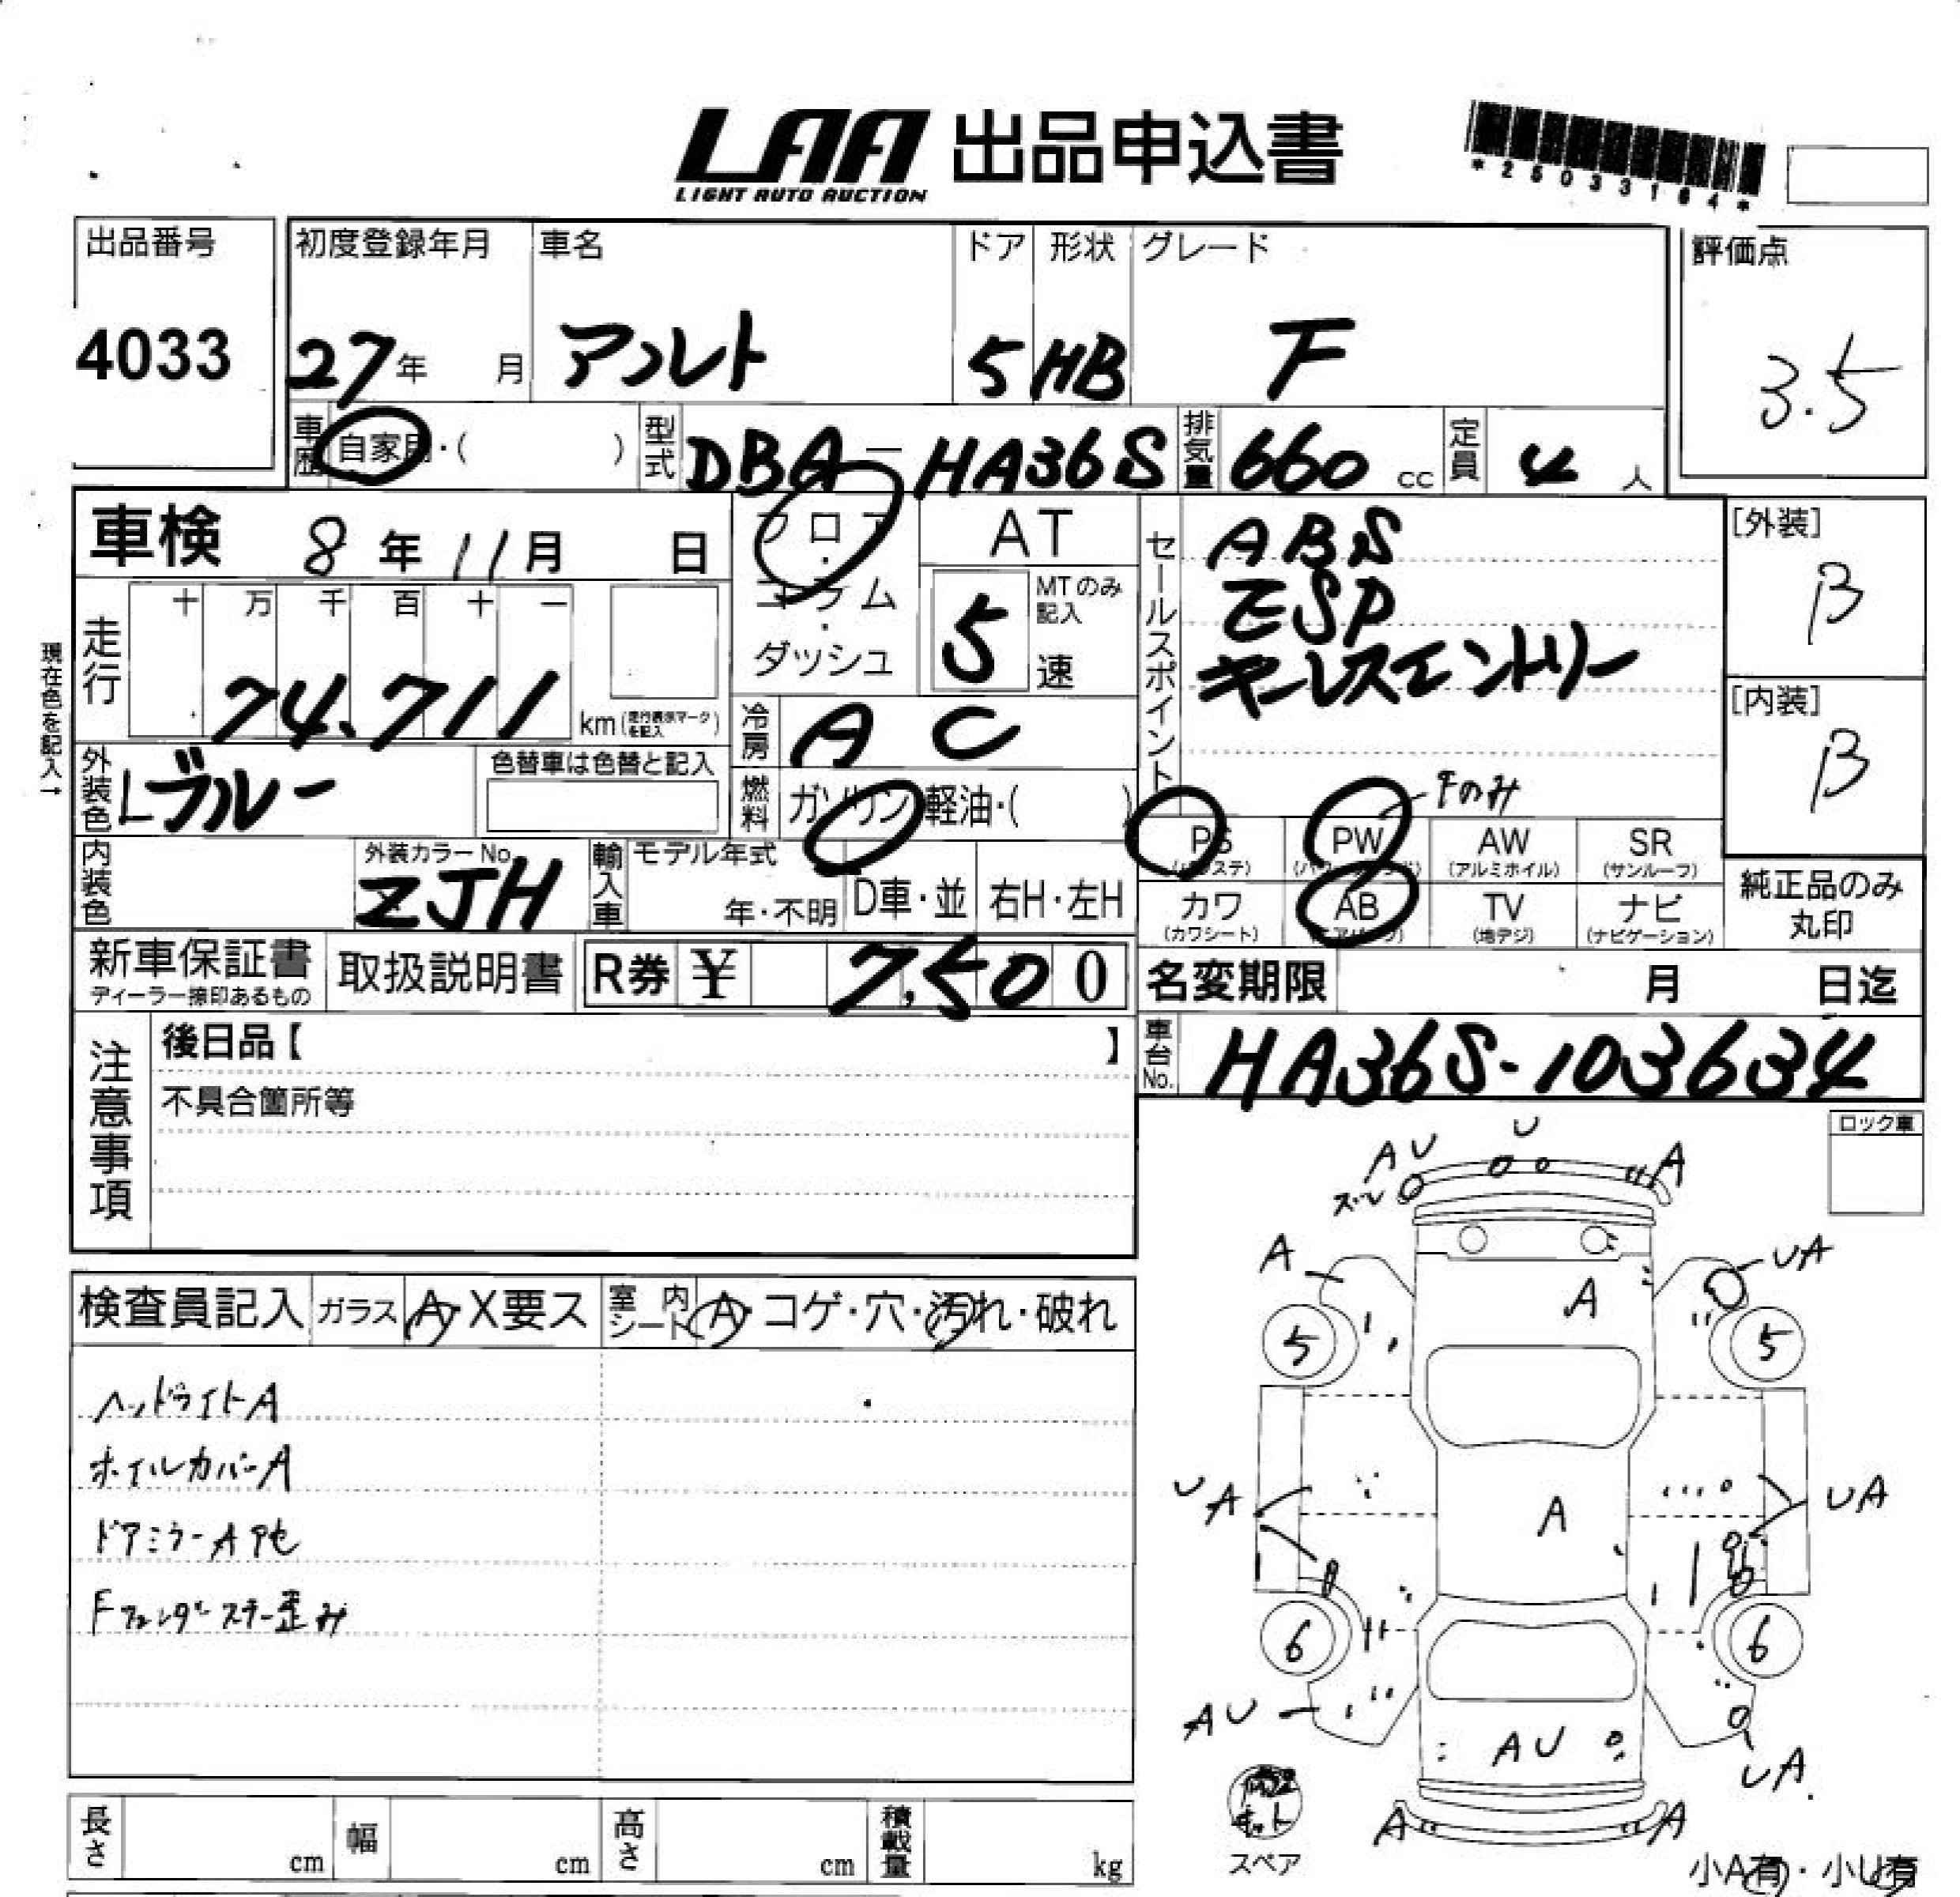 LAA 出品申込書
LIGHT AUTO AUCTION
*25033164*
出品番号
4033
初度登録年月
27年 月
車名
アルト
ドア
5
形状
HB
グレード
F
評価点
3.5
車歴 自家用・( )
型式 DBA-HA36S
排気量 660 cc
定員 4 人
車検 8年11月 日
フロア・コラム・ダッシュ
AT
5 MTのみ記入 速
セールスポイント
ABS
ESP
キーレスエントリー
[外装]
B
[内装]
B
現在色を記入→
走行 十 万 千 百 十 一
74,711 km(走行表示マークを記入)
冷房 AC
外装色 Lブルー
色替車は色替と記入
燃料 ガソリン 軽油・( )
Fのみ
PS PW AW SR
(パワステ) (パワーウィンド) (アルミホイル) (サンルーフ)
カワ AB TV ナビ
(カワシート) (エアバッグ) (地デジ) (ナビゲーション)
純正品のみ
丸印
内装色
外装カラーNo.
ZJH
輸入車 モデル年式
年・不明 D車・並 右H・左H
新車保証書
ディーラー捺印あるもの
取扱説明書
R券 ¥ 7,500
名変期限 月 日迄
車台No. HA36S-103634
注意事項
後日品【 】
不具合箇所等
ロック車
検査員記入 ガラス A・X要ス 室内シート A・コゲ・穴・汚れ・破れ
ヘッドライトA
ホイルカバーA
ドアミラーA 他
Fフェンダーステー歪み
U
AU
A
ズレ
A
UA
A
5
5
UA
A
UA
6
6
AU
AU
UA
A
A
キット
スペア
小A有・小U有
長さ cm 幅 cm 高さ cm 積載量 kg